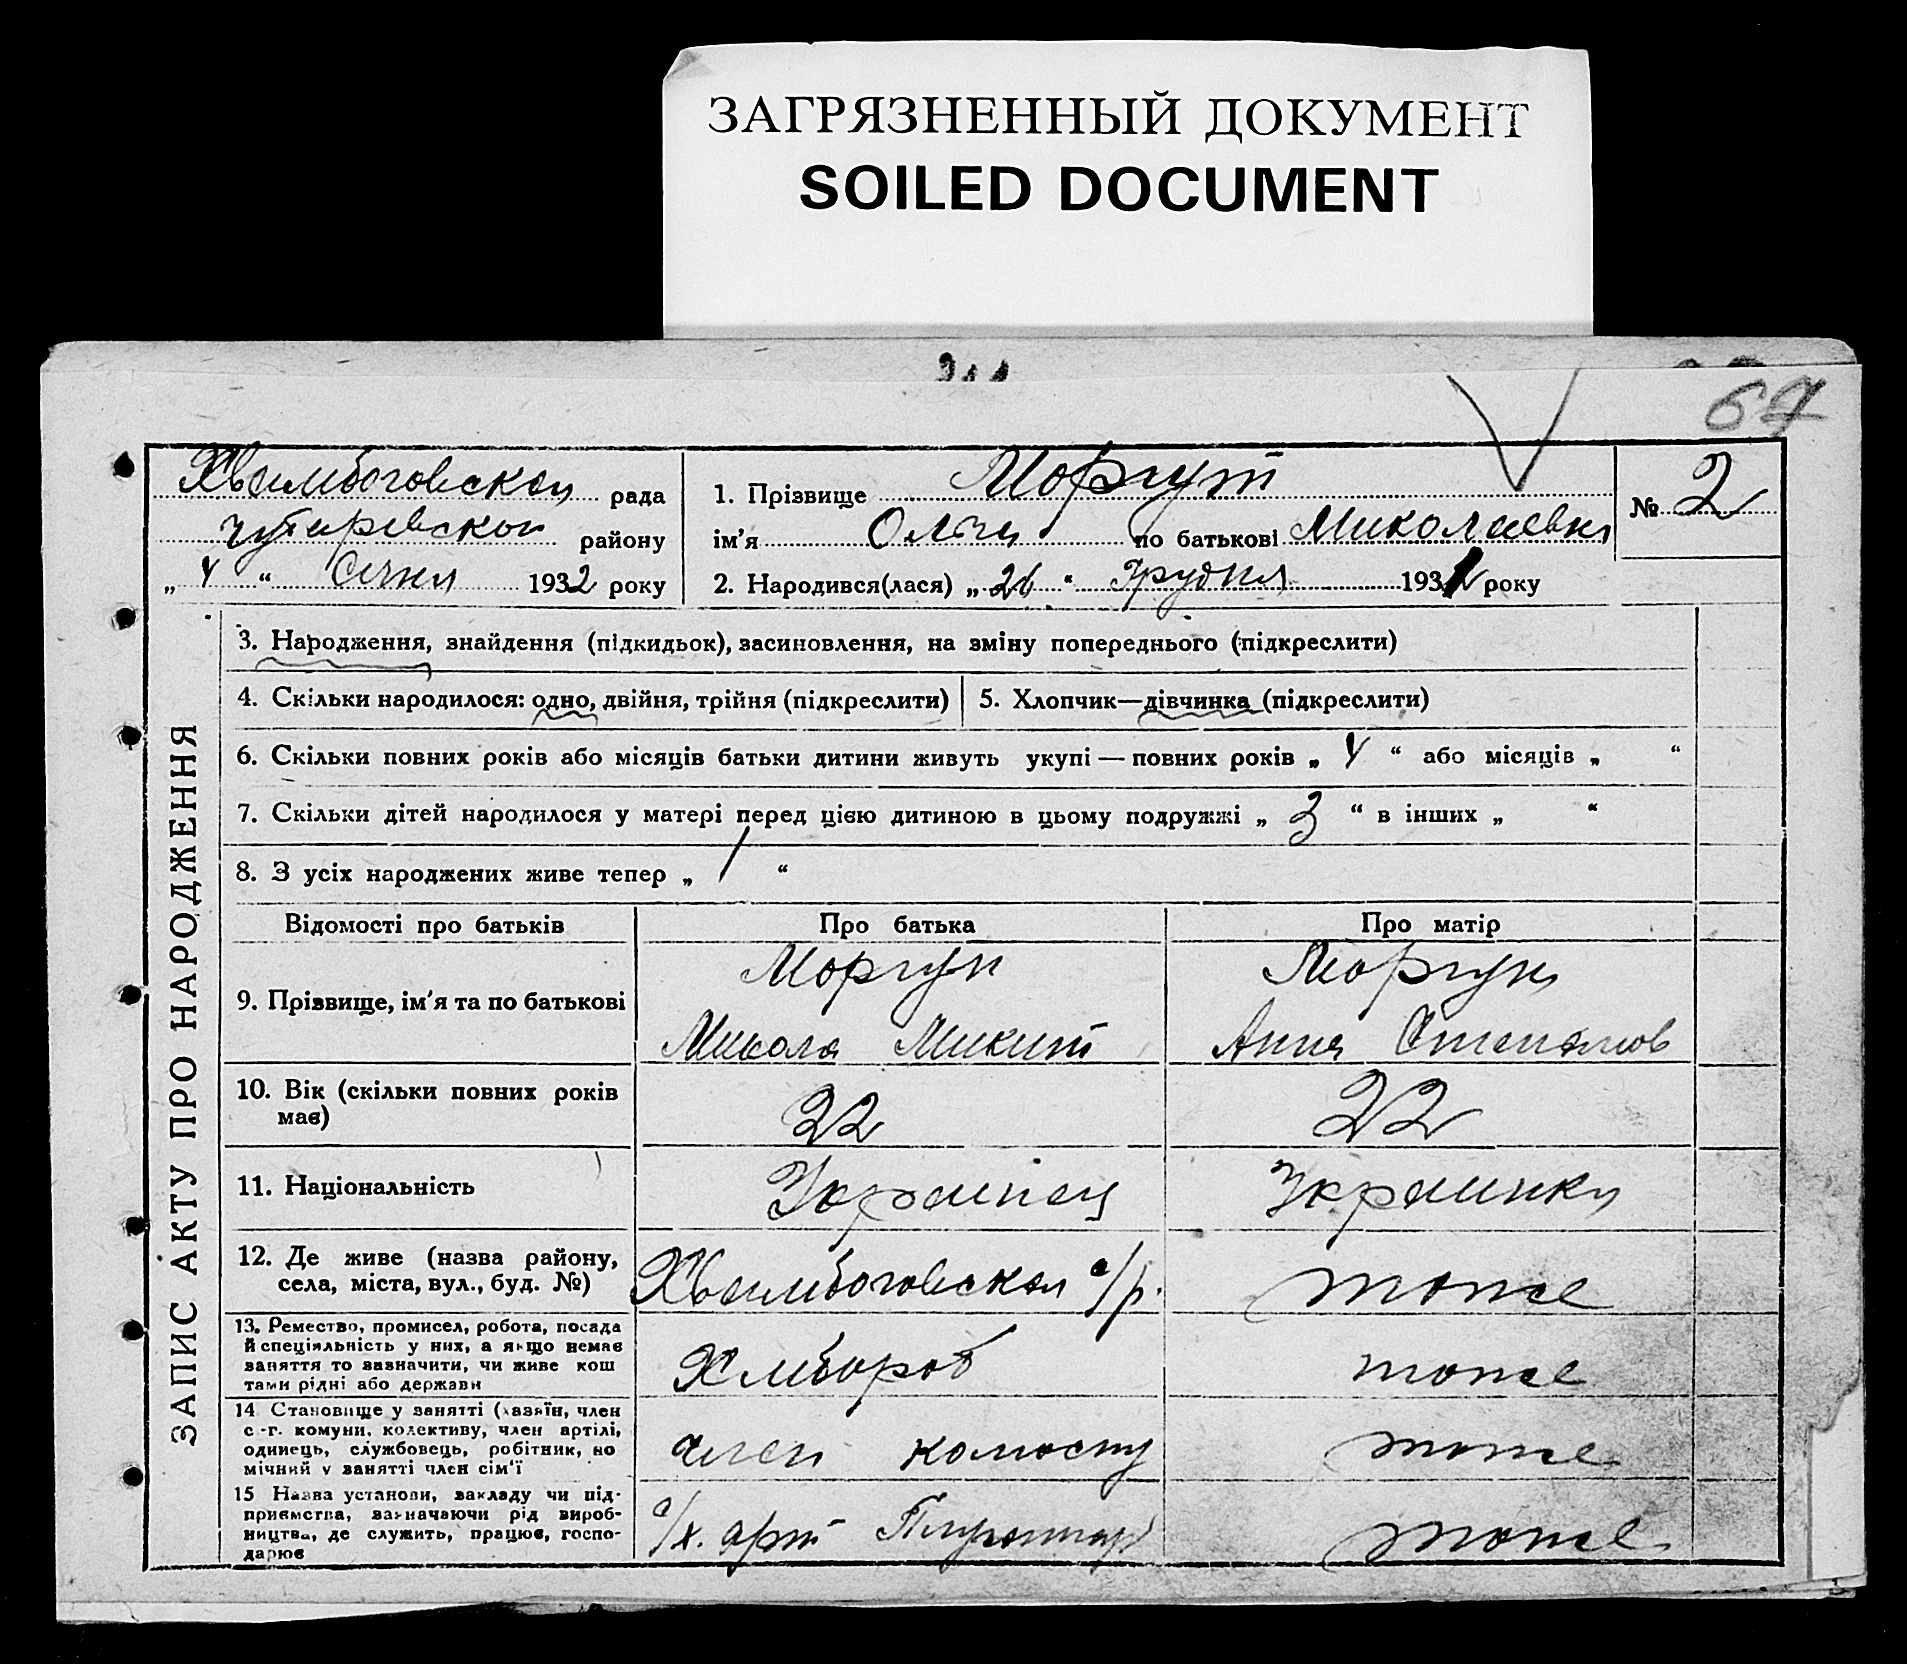 ЗАГРЯЗНЕННЫЙ ДОКУМЕНТ
SOILED DOCUMENT
67
рада
Чутировской району
„ 4 “ Січня 1932 року
1. Прізвище Моргун
ім'я Ольга по батькові Миколаевна
2. Народився(лася) „ 26 “ Грудня 1931 року
№ 2
ЗАПИС АКТУ ПРО НАРОДЖЕННЯ
3. Народження, знайдення (підкидьок), засиновлення, на зміну попереднього (підкреслити)
4. Скільки народилося: одно, двійня, трійня (підкреслити)
5. Хлопчик—дівчинка (підкреслити)
6. Скільки повних років або місяців батьки дитини живуть укупі — повних років „ 4 “ або місяців „ “
7. Скільки дітей народилося у матері перед цією дитиною в цьому подружжі „ 3 “ в інших „ “
8. З усіх народжених живе тепер „ 1 “
Відомості про батьків
Про батька
Про матір
9. Прізвище, ім'я та по батькові
Моргун
Микола Микит
Моргун
Анна Степанов
10. Вік (скільки повних років
має)
22
22
11. Національність
Украинец
Украинка
12. Де живе (назва району,
села, міста, вул., буд. №)
с/р.
тоже
13. Ремество, промисел, робота, посада
й спеціяльність у них, а якщо немає
заняття то зазначити, чи живе кош
тами рідні або держави
Хлибороб
тоже
14 Становище у занятті (хазяїн, член
с-г. комуни, колективу, член артілі,
одинець, службовець, робітник, по
мічний у занятті член сім'ї
член колгоспу
тоже
15 Назва установи, закладу чи під-
приємства, зазначаючи рід вироб-
ництва, де служить, працює, госпо-
дарює
с/х. арт
тоже